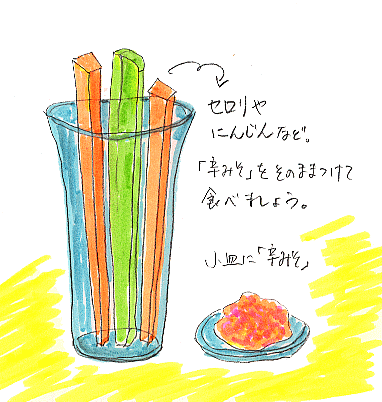 セロリや
にんじんなど。
「辛みそ」をそのままつけて
食べましょう。
小皿に「辛みそ」